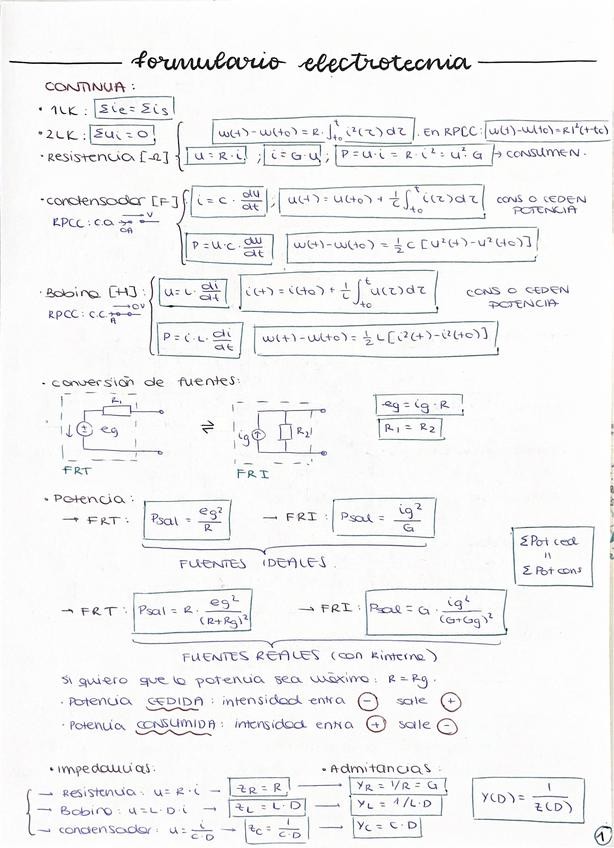 formulario electrotecnia
CONTINUA:
· 1LK: Σie = Σis
· 2LK: Σui = 0
w(t)-w(to) = R·∫_to^t i²(τ)dτ. En RPCC: w(t)-w(to) = RI²(t-to)
· Resistencia [Ω] u = R·i ; i = G·u ; P = u·i = R·i² = u²·G → CONSUMEN.
· condensador [F] i = C·du/dt ; u(t) = u(to) + 1/C ∫_to^t i(τ)dτ CONS O CEDEN POTENCIA
RPCC: C.A. OA V
P = u·C·du/dt w(t)-w(to) = 1/2 C [u²(t)-u²(to)]
· Bobina [H]: u = L·di/dt i(t) = i(to) + 1/L ∫_to^t u(τ)dτ CONS O CEDEN POTENCIA
RPCC: C.C. OV A
P = i·L·di/dt w(t)-w(to) = 1/2 L [i²(t)-i²(to)]
· conversión de fuentes:
R1 eg ⇌ ig R2 eg = ig·R
R1 = R2
FRT FRI
· Potencia:
→ FRT: Psal = eg²/R → FRI: Psal = ig²/G
FUENTES IDEALES.
ΣPot ced
=
ΣPot cons
→ FRT: Psal = R·eg²/(R+Rg)² → FRI: Psal = G·ig²/(G+Gg)²
FUENTES REALES (con Rinterna)
Si quiero que la potencia sea máxima: R = Rg.
· Potencia CEDIDA: intensidad entra - sale +
· Potencia CONSUMIDA: intensidad entra + sale -
· Impedancias: · Admitancias:
→ Resistencia: u = R·i → ZR = R → YR = 1/R = G
→ Bobina: u = L·D·i → ZL = L·D → YL = 1/L·D
→ condensador: u = i/C·D → ZC = 1/C·D → YC = C·D
Y(D) = 1/Z(D)
1